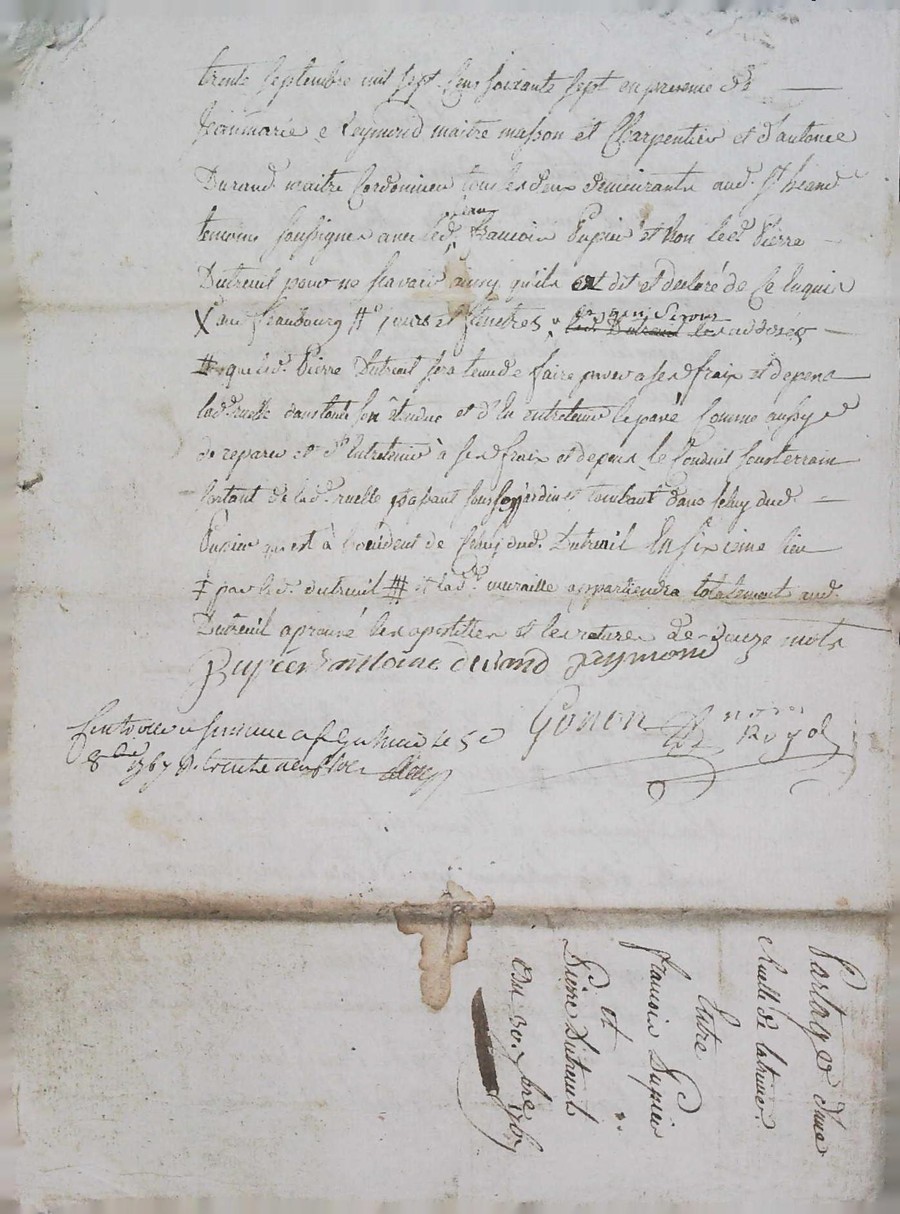 trente septembre mil sept cens soixante sept en presence de
Jeanmarie Reymond maitre masson et Charpentier et d'antoine
Durand maitre Cordonnier tous les deux demeurants aud. St
temoins soussignes avec led. jean francois Pupier et non led. Pierre
Dutreuil pour ne scavoir ainsy qu'ils ont dit et declaré de ce enquis
X au fraubourg # jours et fenetres
# que led. Pierre Dutreuil sera tenu de faire paver a ses fraix et depens
lad. ruelle dans toute son étendue et d'en entretenir le pavé comme aussy
de reparer et d'entretenir à ses fraix et depens le Conduit sousterrain
sortant de lad. ruelle passant sous son jardin et tombant dans celuy dud.
Pupier qui est à l'occident de celuy dud. Dutreuil En sixieme lieu
‡ par led. dutreuil # et lad. muraille appartiendra totalement aud.
Dutreuil aprouvé les apostilles et les ratures de douze mots
Pupier antoine durand Reymond
Gonon nore
Royal
Controllé le 5e
8bre 1767
Partage d'une
Ruelle de latrines
Entre
francois Pupier
et
Pierre Dutreuil
Du 30. 7bre 1767